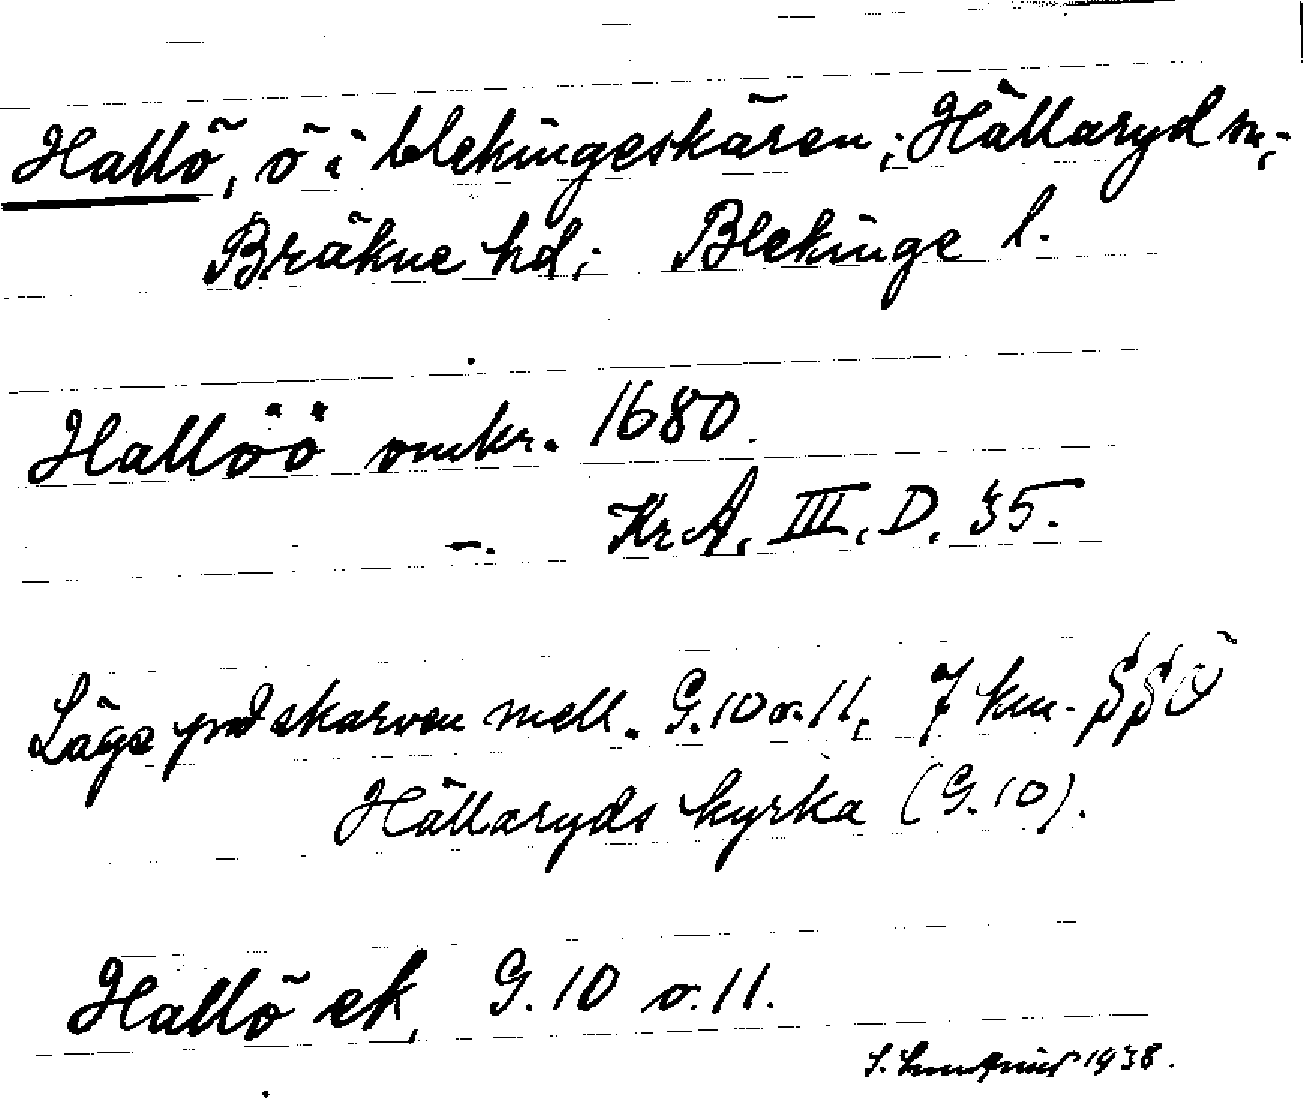 Hallö, ö i blekingeskären; Hällaryd sn;
Bräkne hd; Blekinge l.
Hallöö omkr. 1680.
–. KrA, III. D. 35.
Läge på skarven mell. G. 10 o. 11, 7 km. SSÖ
Hällaryds kyrka (G. 10).
Hallö ek. G. 10 o. 11.
1938.